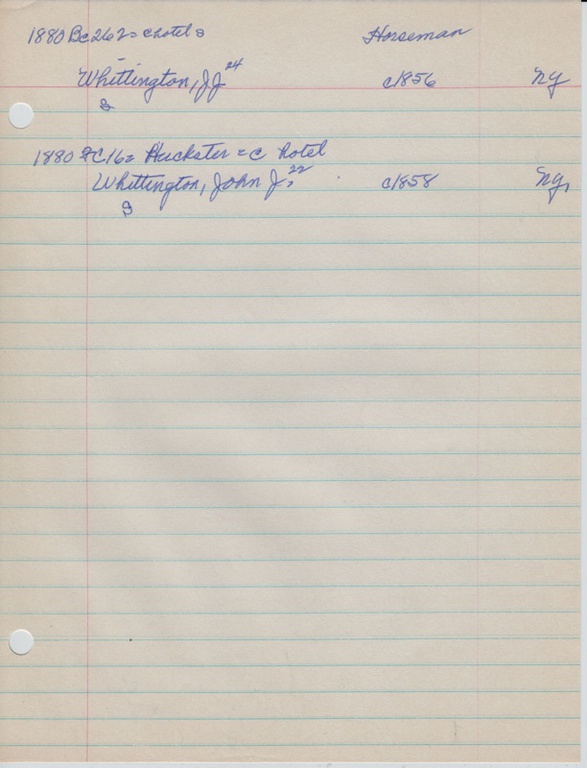 1880 Bc262= c hotel s Horseman
Whittington, JJ 24 c1856 NY
S
1880 C16= Huckster = c hotel
Whittington, John J. 22 c1858 NY,
S